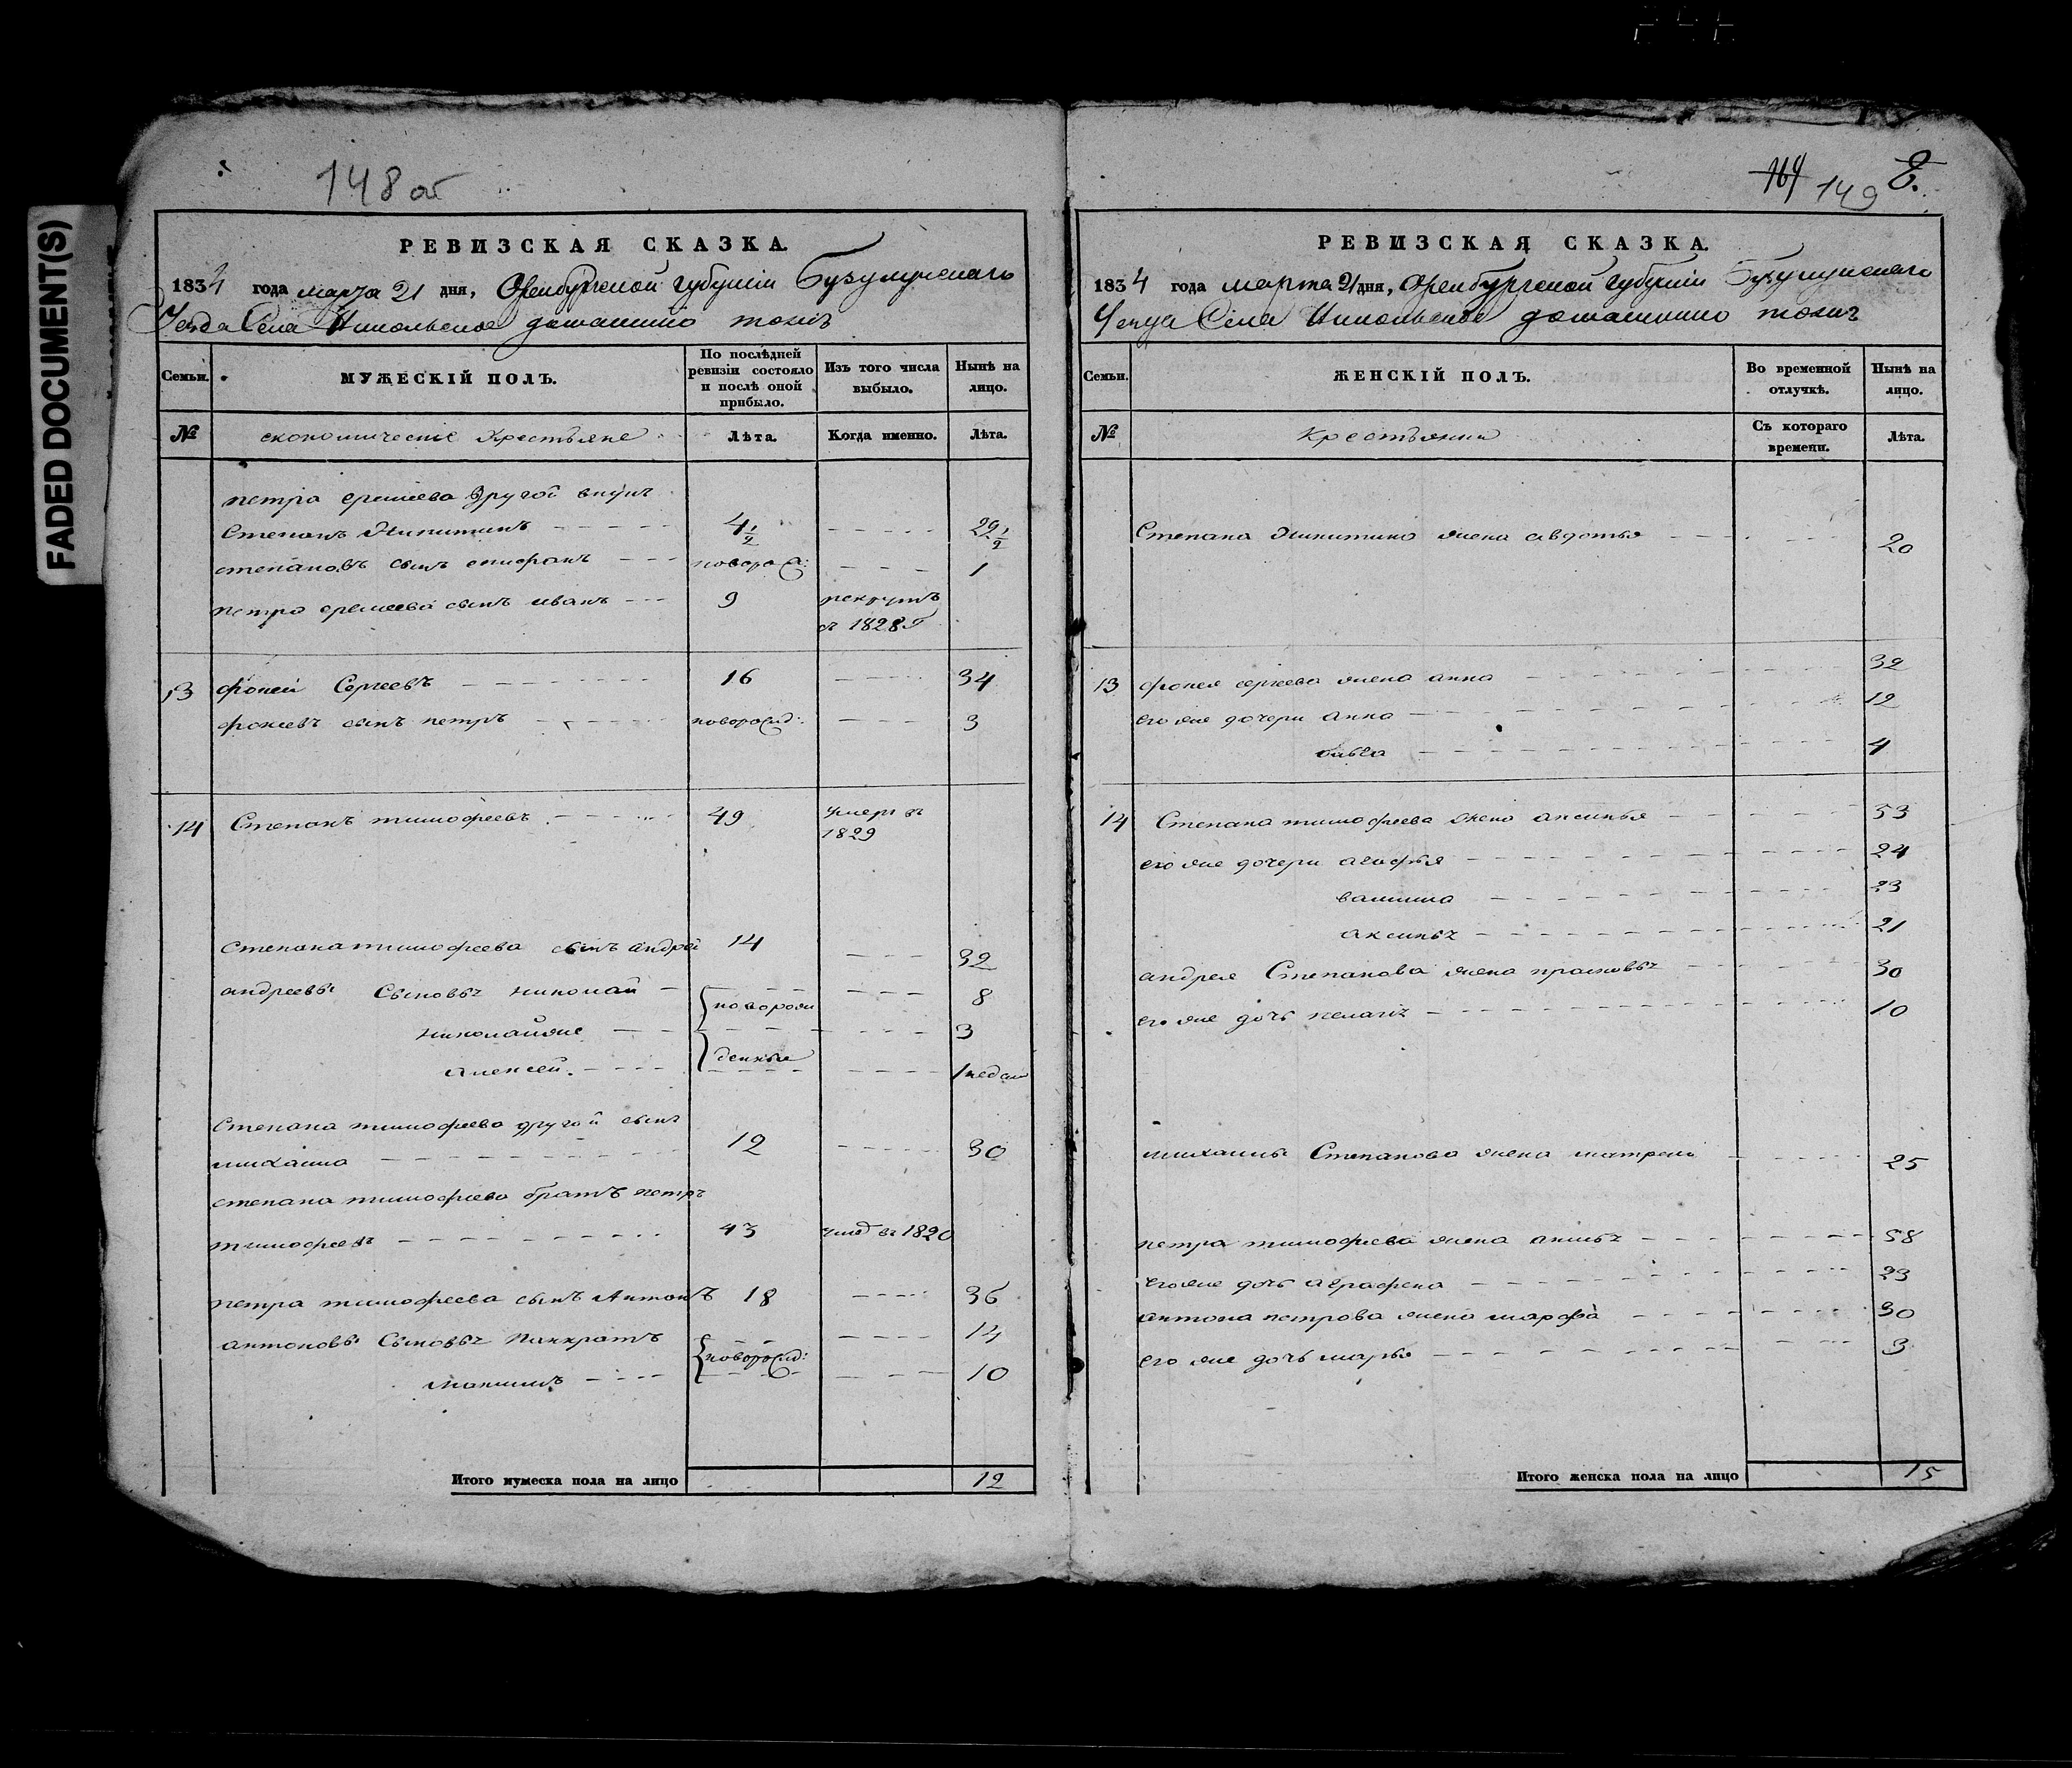 FADED DOCUMENT(S)
148 об
РЕВИЗСКАЯ СКАЗКА.
1834 года марта 21 дня, Оренбургской губерніи Бузулукскаго
Уезда Села Никольское
Семьи. МУЖЕСКІЙ ПОЛЪ. По послѣдней ревизіи состояло и послѣ оной прибыло. Изъ того числа выбыло. Нынѣ на лицо.
№ економическіе Крестьяне Лѣта. Когда именно. Лѣта.
петра еремеева другой внукъ
Степанъ Никитинъ 4 1/2 29 1/2
степановъ сынъ епифанъ новорож: 1
петра еремеева сынъ иванъ 9 рекрутъ
въ 1828 г
13 фокей Сергеевъ 16 34
фокиевъ сынъ петръ новорожд: 3
14 Степанъ тимофеевъ 49 умеръ въ
1829
степана тимофеева сынъ андрей 14 32
андреевы Сыновья николай новорож 8
николай же 3
Алексей. денные 1 недел
Степана тимофеева другой сынъ
михаила 12 30
степана тимофеева братъ петръ
тимофеевъ 43 умер въ 1820
петра тимофеева сынъ Антонъ 18 36
антоновы Сыновья панкратъ новорожд: 14
максимъ 10
Итого мужеска пола на лицо 12
164 149 8.
РЕВИЗСКАЯ СКАЗКА.
1834 года марта 21 дня, Оренбургской губерніи Бузулукскаго
Уезда Села Никольское
Семьи. ЖЕНСКІЙ ПОЛЪ. Во временной отлучкѣ. Нынѣ на лицо.
№ Крестьянки Съ котораго времени. Лѣта.
Степана Никитина жена авдотья 20
13 фокея сергеева жена анна 32
его же дочери анна 12
4
14 Степана тимофеева жена аксинья 53
его же дочери агафья 24
23
аксинья 21
андрея Степанова жена прасковья 30
его же дочь пелагия 10
михаилы Степанова жена матрена 25
петра тимофеева жена 58
его же дочь аграфена 23
антона петрова жена марфа 30
его же дочь марья 3
Итого женска пола на лицо 15